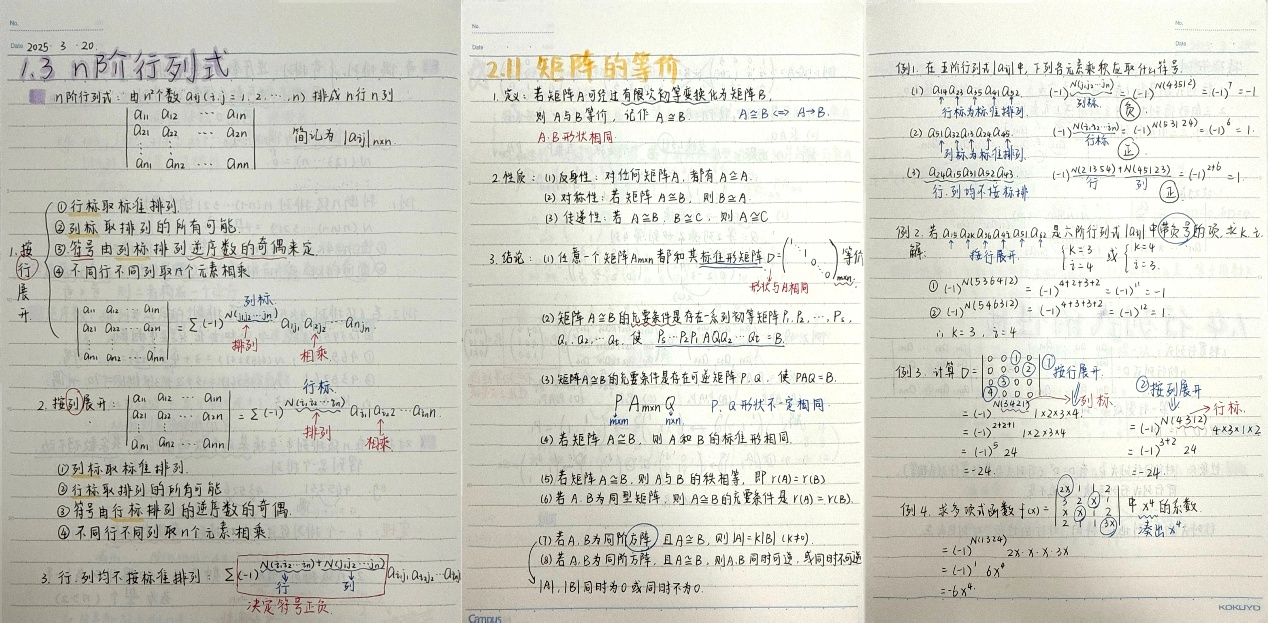 No.
Date 2025 · 3 · 20
1.3 n阶行列式
n阶行列式：由n²个数 aij (i,j=1,2,…,n) 排成n行n列
a11 a12 … a1n
a21 a22 … a2n
⋮
an1 an2 … ann
简记为 |aij|n×n
1.按行展开
①行标取标准排列.
②列标取排列的所有可能.
③符号由列标排列逆序数的奇偶来定.
④不同行不同列取n个元素相乘
列标
a11 a12 … a1n
a21 a22 … a2n
⋮
an1 an2 … ann
= Σ (-1)^N(j1j2…jn) a1j1 a2j2 … anjn.
排列
相乘
行标
2. 按列展开：
a11 a12 … a1n
a21 a22 … a2n
⋮
an1 an2 … ann
= Σ (-1)^N(i1i2…in) ai11 ai22 … ainn.
排列
相乘
①列标取标准排列.
②行标取排列的所有可能
③符号由行标排列的逆序数的奇偶.
④不同行不同列取n个元素相乘.
3. 行.列均不按标准排列： Σ (-1)^N(i1i2…in)+N(j1j2…jn) ai1j1 ai2j2 … ainjn
行 列
决定符号正负.
No.
Date
2.11 矩阵的等价
1. 定义：若矩阵A可经过有限次初等变换化为矩阵B,
则A与B等价，记作 A≅B. A≅B <=> A→B.
A.B形状相同.
2.性质：(1) 反身性：对任何矩阵A, 都有A≅A.
(2) 对称性：若矩阵A≅B, 则B≅A.
(3) 传递性：若A≅B, B≅C, 则A≅C
3. 结论：(1) 任意一个矩阵Am×n都和其标准形矩阵D=(1⋱1 0⋱0)m×n等价
形状与A相同
(2) 矩阵A≅B的充要条件是存在一系列初等矩阵P1,P2,…,Ps,
Q1,Q2,…Qt, 使 Ps…P2P1AQ1Q2…Qt=B.
(3) 矩阵A≅B的充要条件是存在可逆矩阵P.Q, 使PAQ=B.
P Am×n Q P.Q形状不一定相同.
m×m n×n
(4) 若矩阵A≅B, 则A和B的标准形相同.
(5) 若矩阵A≅B, 则A与B的秩相等, 即r(A)=r(B)
(6) 若A.B为同型矩阵, 则A≅B的充要条件是r(A)=r(B).
(7) 若A.B为同阶方阵, 且A≅B, 则|A|=k|B| (k≠0).
(8) 若A.B为同阶方阵, 且A≅B, 则A.B同时可逆, 或同时不可逆
|A|,|B|同时为0或同时不为0.
Campus
No.
Date
例1. 在五阶行列式|aij|中, 下列各元素乘积应取什么符号.
(1) a14a23a35a41a52 (-1)^N(j1j2…jn) = (-1)^N(43512) = (-1)^7 = -1
列标
行标为标准排列. 负
(2) a51a32a13a24a45 (-1)^N(i1i2…in) = (-1)^N(53124) = (-1)^6 = 1.
行标
列标为标准排列. 正
(3) a24a15a31a52a43 (-1)^N(21354)+N(45123) = (-1)^2+6 = 1.
行 列
行.列均不按标排 正
例2. 若 a15a2ka36a4ia51a62 是六阶行列式|aij|中带负号的项, 求k.i.
解：
按行展开
k=3 i=4 或 k=4 i=3.
① (-1)^N(536412) = (-1)^4+2+3+2 = (-1)^11 = -1
② (-1)^N(546312) = (-1)^4+3+3+2 = (-1)^12 = 1.
∴ k=3, i=4
例3. 计算D=
0 0 ① 0
0 0 0 ②
0 ③ 0 0
④ 0 0 0
①按行展开. 列标.
②按列展开 行标.
= (-1)^N(3421) 1×2×3×4
= (-1)^2+2+1 1×2×3×4
= (-1)^5 24
= -24.
= (-1)^N(4312) 4×3×1×2
= (-1)^3+2 24
= -24.
例4. 求多项式函数f(x)=
2x 1 1 2
3 2 x 1
x x 1 2
1 1 3x
中x⁴的系数.
凑出x⁴
= (-1)^N(1324) 2x·x·x·3x
= (-1)^1 6x⁴
= -6x⁴.
KOKUYO